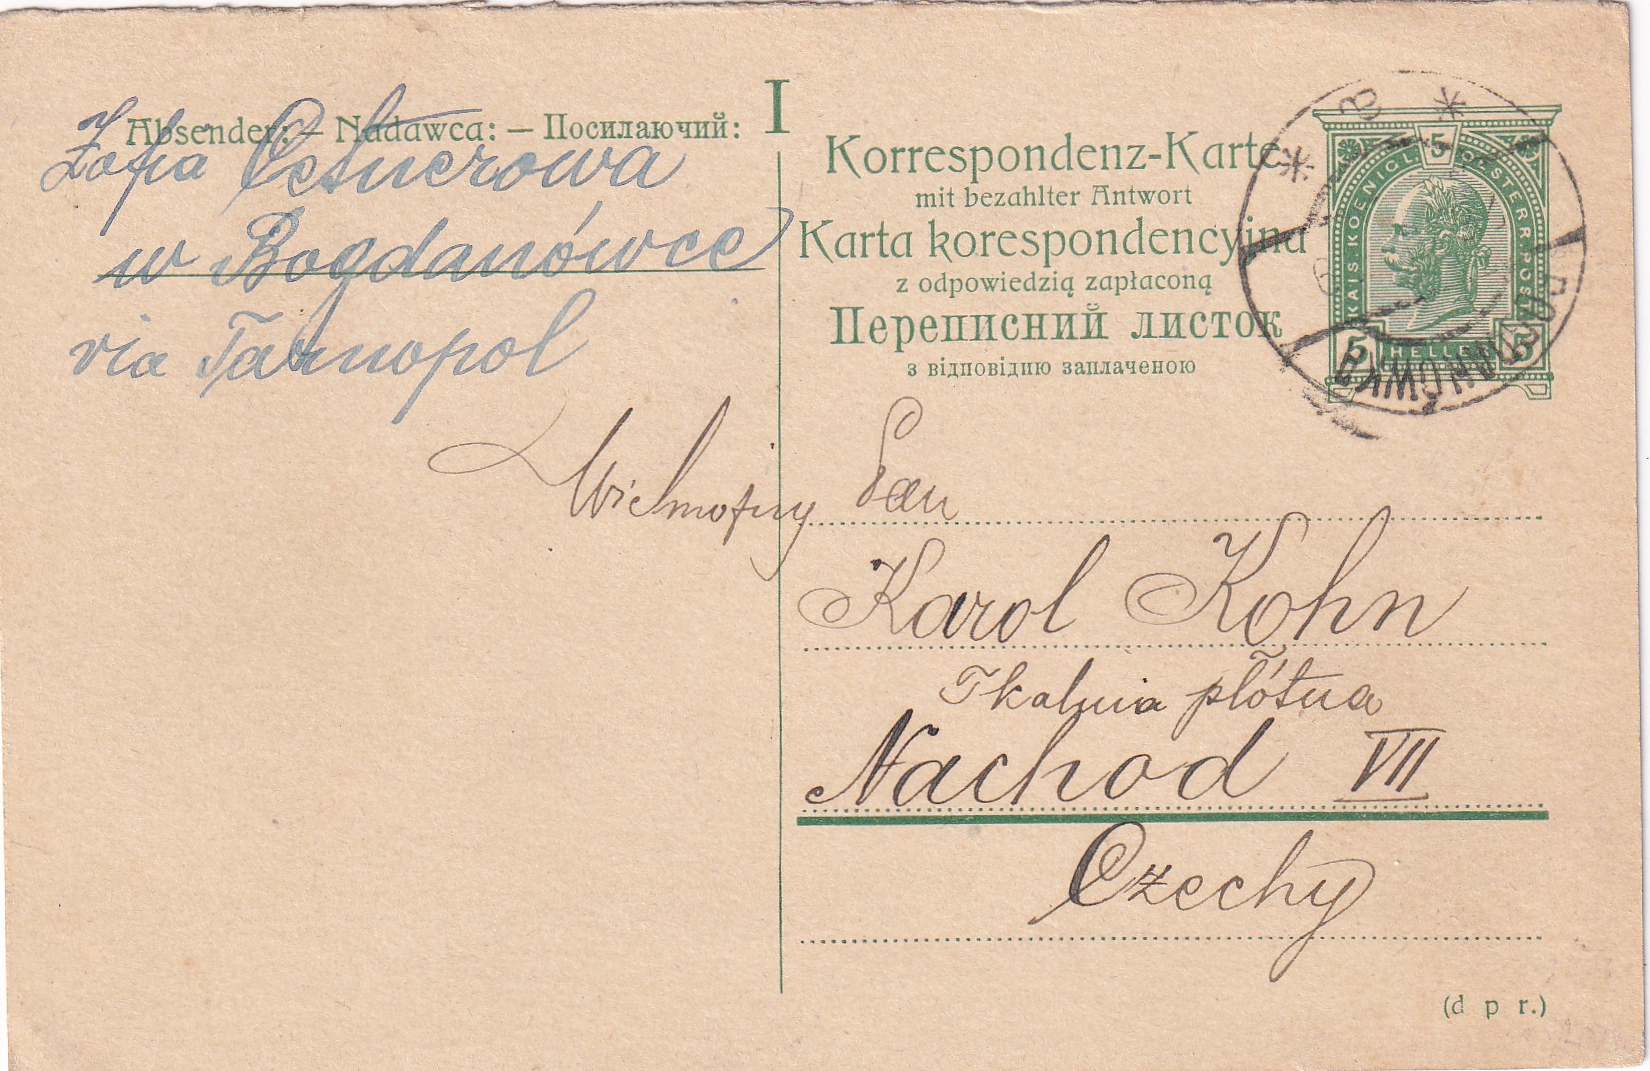 Absender: – Nadawca: – Посилаючий:
I
Zofia Cetnerowa
w Bogdanówce
via Tarnopol
Korrespondenz-Karte
mit bezahlter Antwort
Karta korespondencyjna
z odpowiedzią zapłaconą
Переписний листок
з відповідию заплаченою
5
KAIS. KOENIGL. OESTERR. POST
5 HELLER 5
Wielmożny Pan
Karol Kohn
Tkalnia płótna
Nachod VII
Czechy
(d p r.)